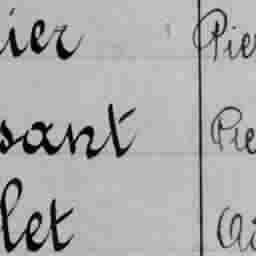 ier Pier
sant Pie
let